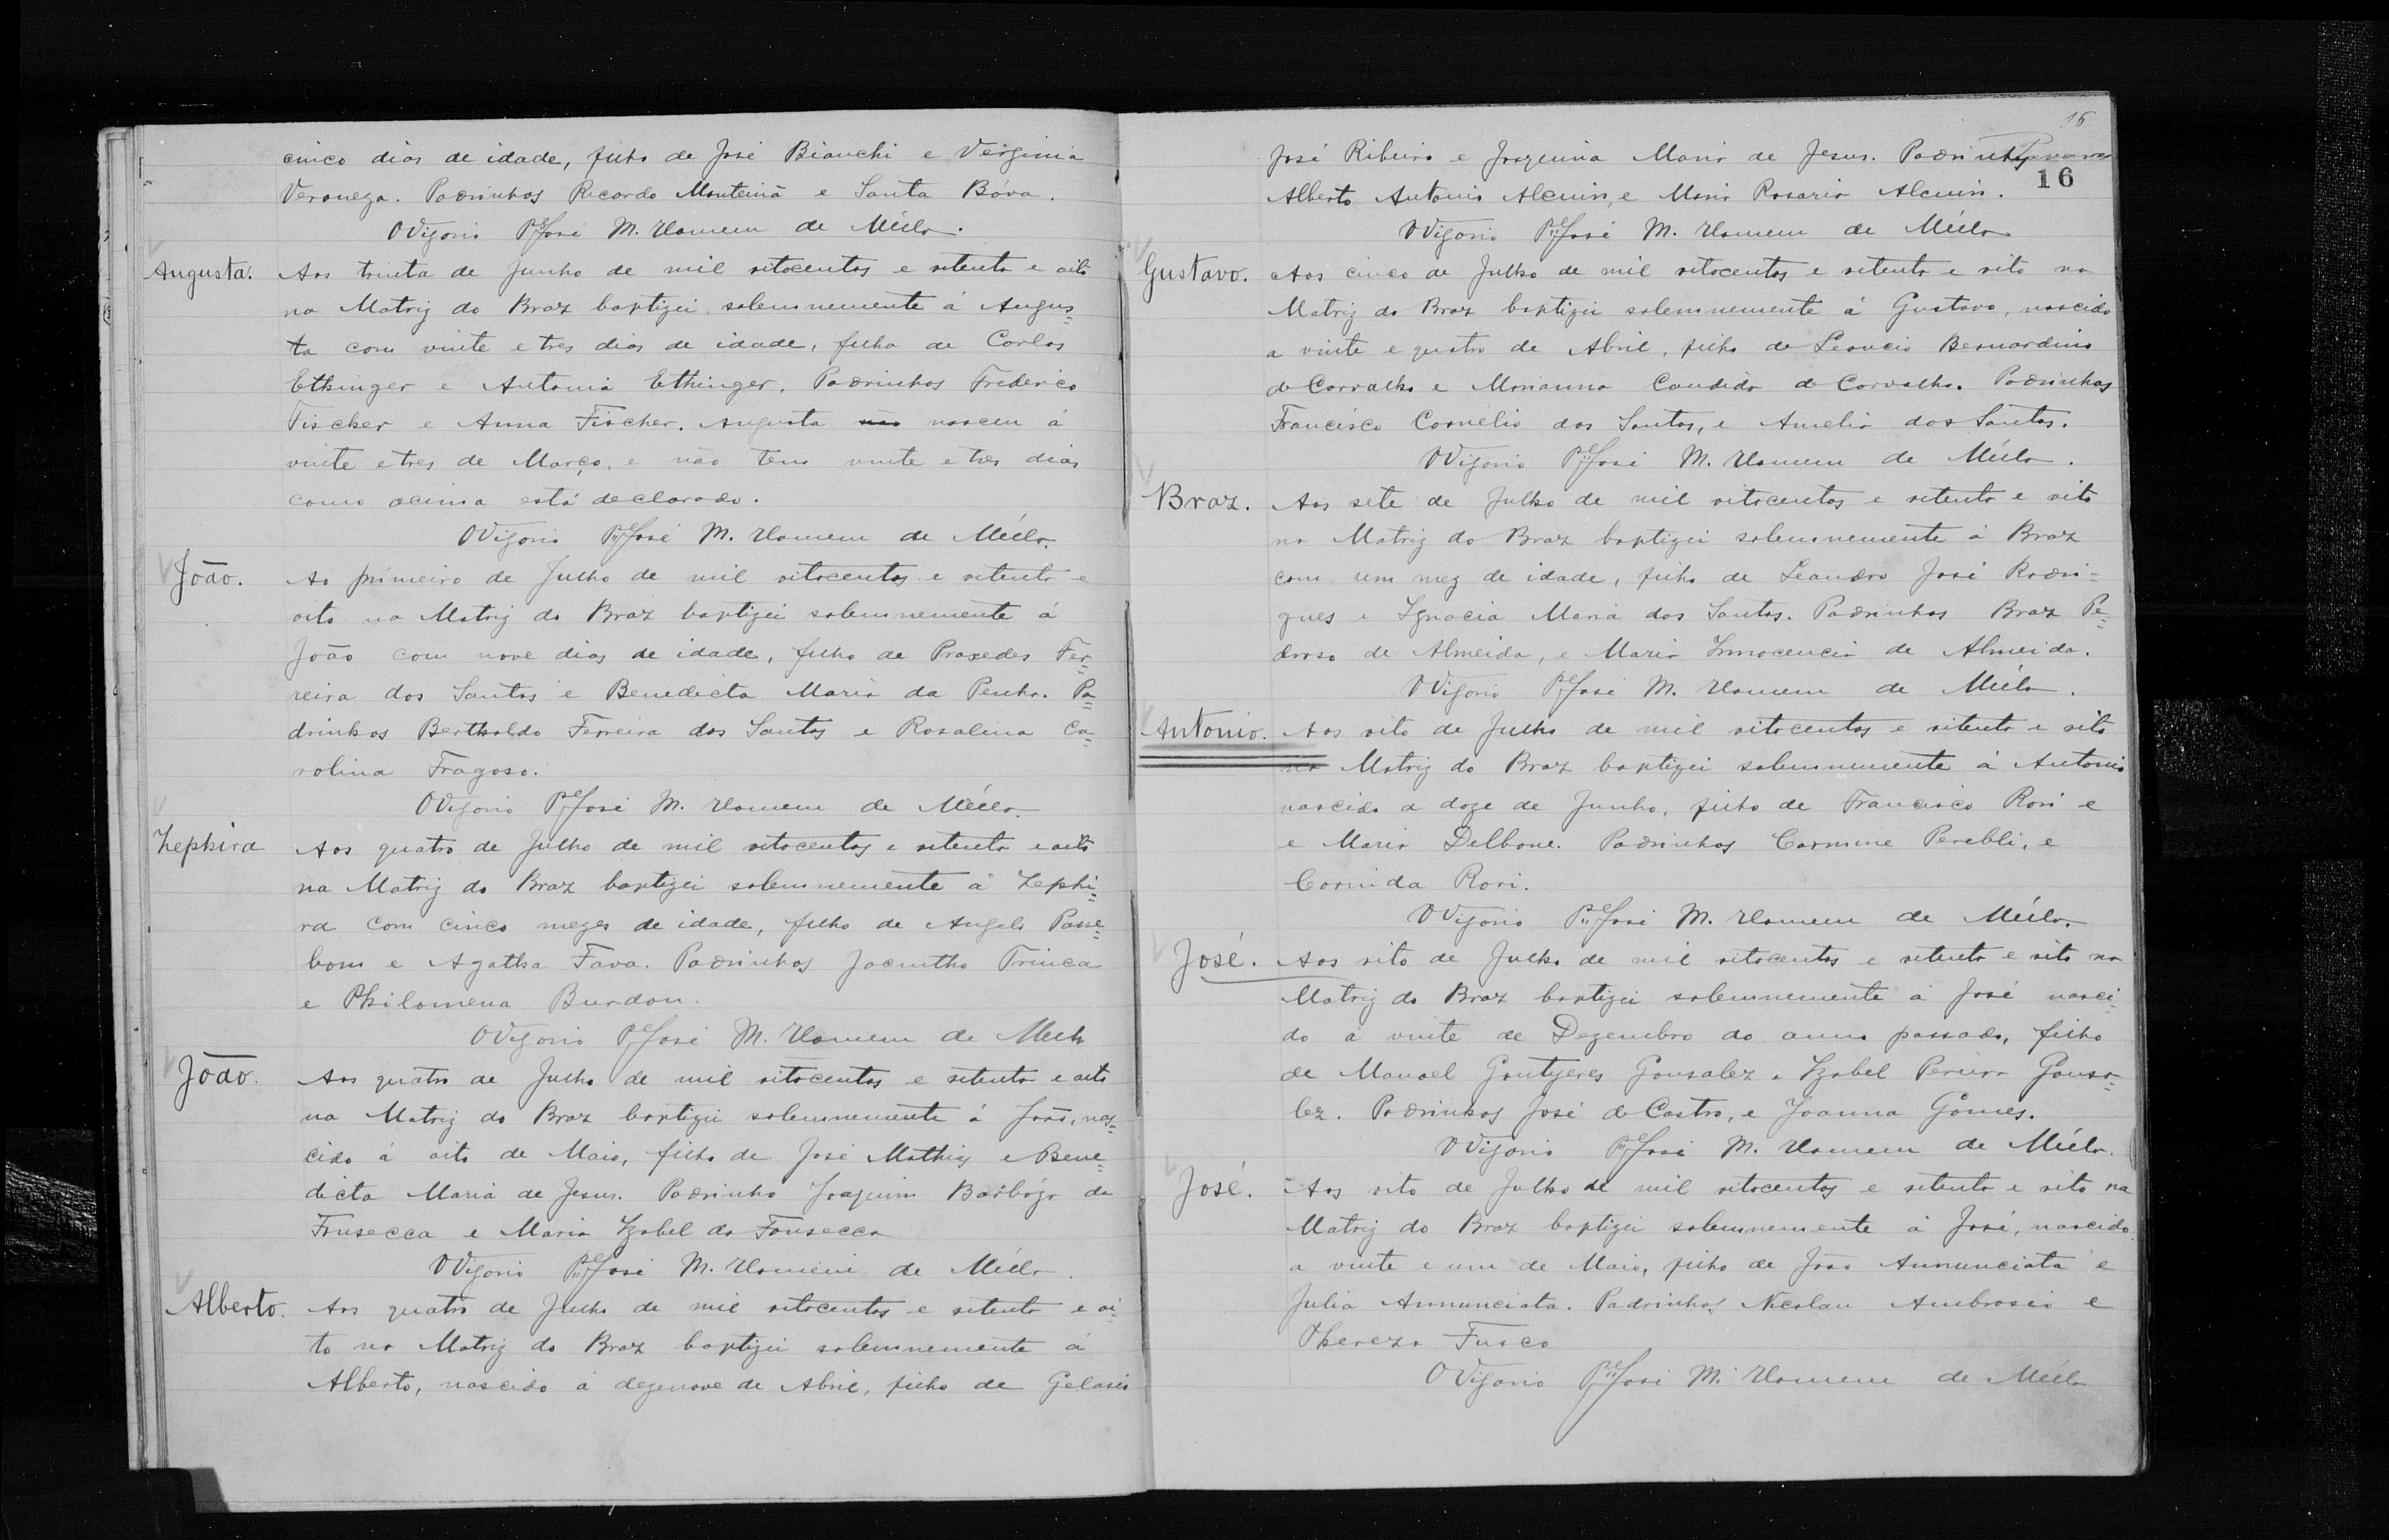 cinco dias de idade, filho de José Bianchi e Verginia
Veronega. Padrinhos Ricardo Monteinã e Santa Bóva.
O Vigario Pe José M. Homem de Méllo.
Augusta. Aos trinta de Junho de mil oitocentos e setenta e oito
na Matriz do Braz baptizei solemnemente á Augus=
ta com vinte e tres dias de idade, filha de Carlos
Ethinger e Antonia Ethinger. Padrinhos Frederico
Fischer e Anna Fischer. Augusta não nasceu á
vinte e tres de Março, e não tem vinte e tres dias
como acima está declarado.
O Vigario Pe José M. Homem de Méllo.
João. Ao primeiro de Julho de mil oitocentos e setenta e
oito na Matriz do Braz baptizei solemnemente á
João com nove dias de idade, filho de Praxedes Fer=
reira dos Santos e Benedicta Maria da Penha. Pa=
drinhos Bertholdo Ferreira dos Santos e Rosalina Ca=
rolina Fragoso.
O Vigario Pe José M. Homem de Méllo.
Zephira Aos quatro de Julho de mil oitocentos e setenta e oito
na Matriz do Braz baptizei solemnemente á Zephi=
ra com cinco mezes de idade, filha de Angelo Passe=
bom e Agatha Fava. Padrinhos Jacintho Trinca
e Philomena Burdon.
O Vigario Pe José M. Homem de Mello
João. Aos quatro de Julho de mil oitocentos e setenta e oito
na Matriz do Braz baptizei solemnemente á João, nas=
cido á oito de Maio, filho de José Mathias e Bene=
dicta Maria de Jesus. Padrinho Joaquim Barboza da
Fonsecca e Maria Izabel da Fonsecca
O Vigario Pe José M. Homem de Méllo.
Alberto. Aos quatro de Julho de mil oitocentos e setenta e oi=
to na Matriz do Braz baptizei solemnemente á
Alberto, nascido á dezenove de Abril, filho de Gelasio
16
José Ribeiro e Joaquina Maria de Jesus. Padrinhos
16
Alberto Antonio Alcuin, e Maria Rosaria Alcuin.
O Vigario Pe José M. Homem de Méllo
Gustavo. Aos cinco de Julho de mil oitocentos e setenta e oito na
Matriz do Braz baptizei solemnemente á Gustavo, nascido
a vinte e quatro de Abril, filho de Leoncio Bernardino
de Carvalho e Marianna Candida de Carvalho. Padrinhos
Francisco Cornélio dos Santos, e Amelia dos Santos.
O Vigario Pe José M. Homem de Méllo.
Braz. Aos sete de Julho de mil oitocentos e setenta e oito
na Matriz do Braz baptizei solemnemente á Braz
com um mez de idade, filho de Leandro José Rodri=
gues e Ignacia Maria dos Santos. Padrinhos Braz Pe=
droso de Almeida, e Maria Innocencia de Almeida.
O Vigario Pe José M. Homem de Méllo.
Antonio. Aos oito de Julho de mil oitocentos e setenta e oito
na Matriz do Braz baptizei solemnemente á Antonio
nascido a doze de Junho, filho de Francisco Rori e
e Maria Delbone. Padrinhos Carmine Perebli, e
Corinda Rori.
O Vigario Pe José M. Homem de Méllo.
José. Aos oito de Julho de mil oitocentos e setenta e oito na
Matriz do Braz baptizei solemnemente á José nasci=
do á vinte de Dezembro do anno passado, filho
de Manoel Gontijeres Gonsalez e Izabel Pereira Gonsa=
lez. Padrinhos José de Castro, e Joanna Gomes.
O Vigario Pe José M. Homem de Méllo.
José. Aos oito de Julho de mil oitocentos e setenta e oito na
Matriz do Braz baptizei solemnemente á José, nascido
a vinte e um de Maio, filho de João Annunciata e
Julia Annunciata. Padrinhos Nicolau Ambrosio e
Thereza Fusco
O Vigario Pe José M. Homem de Méllo